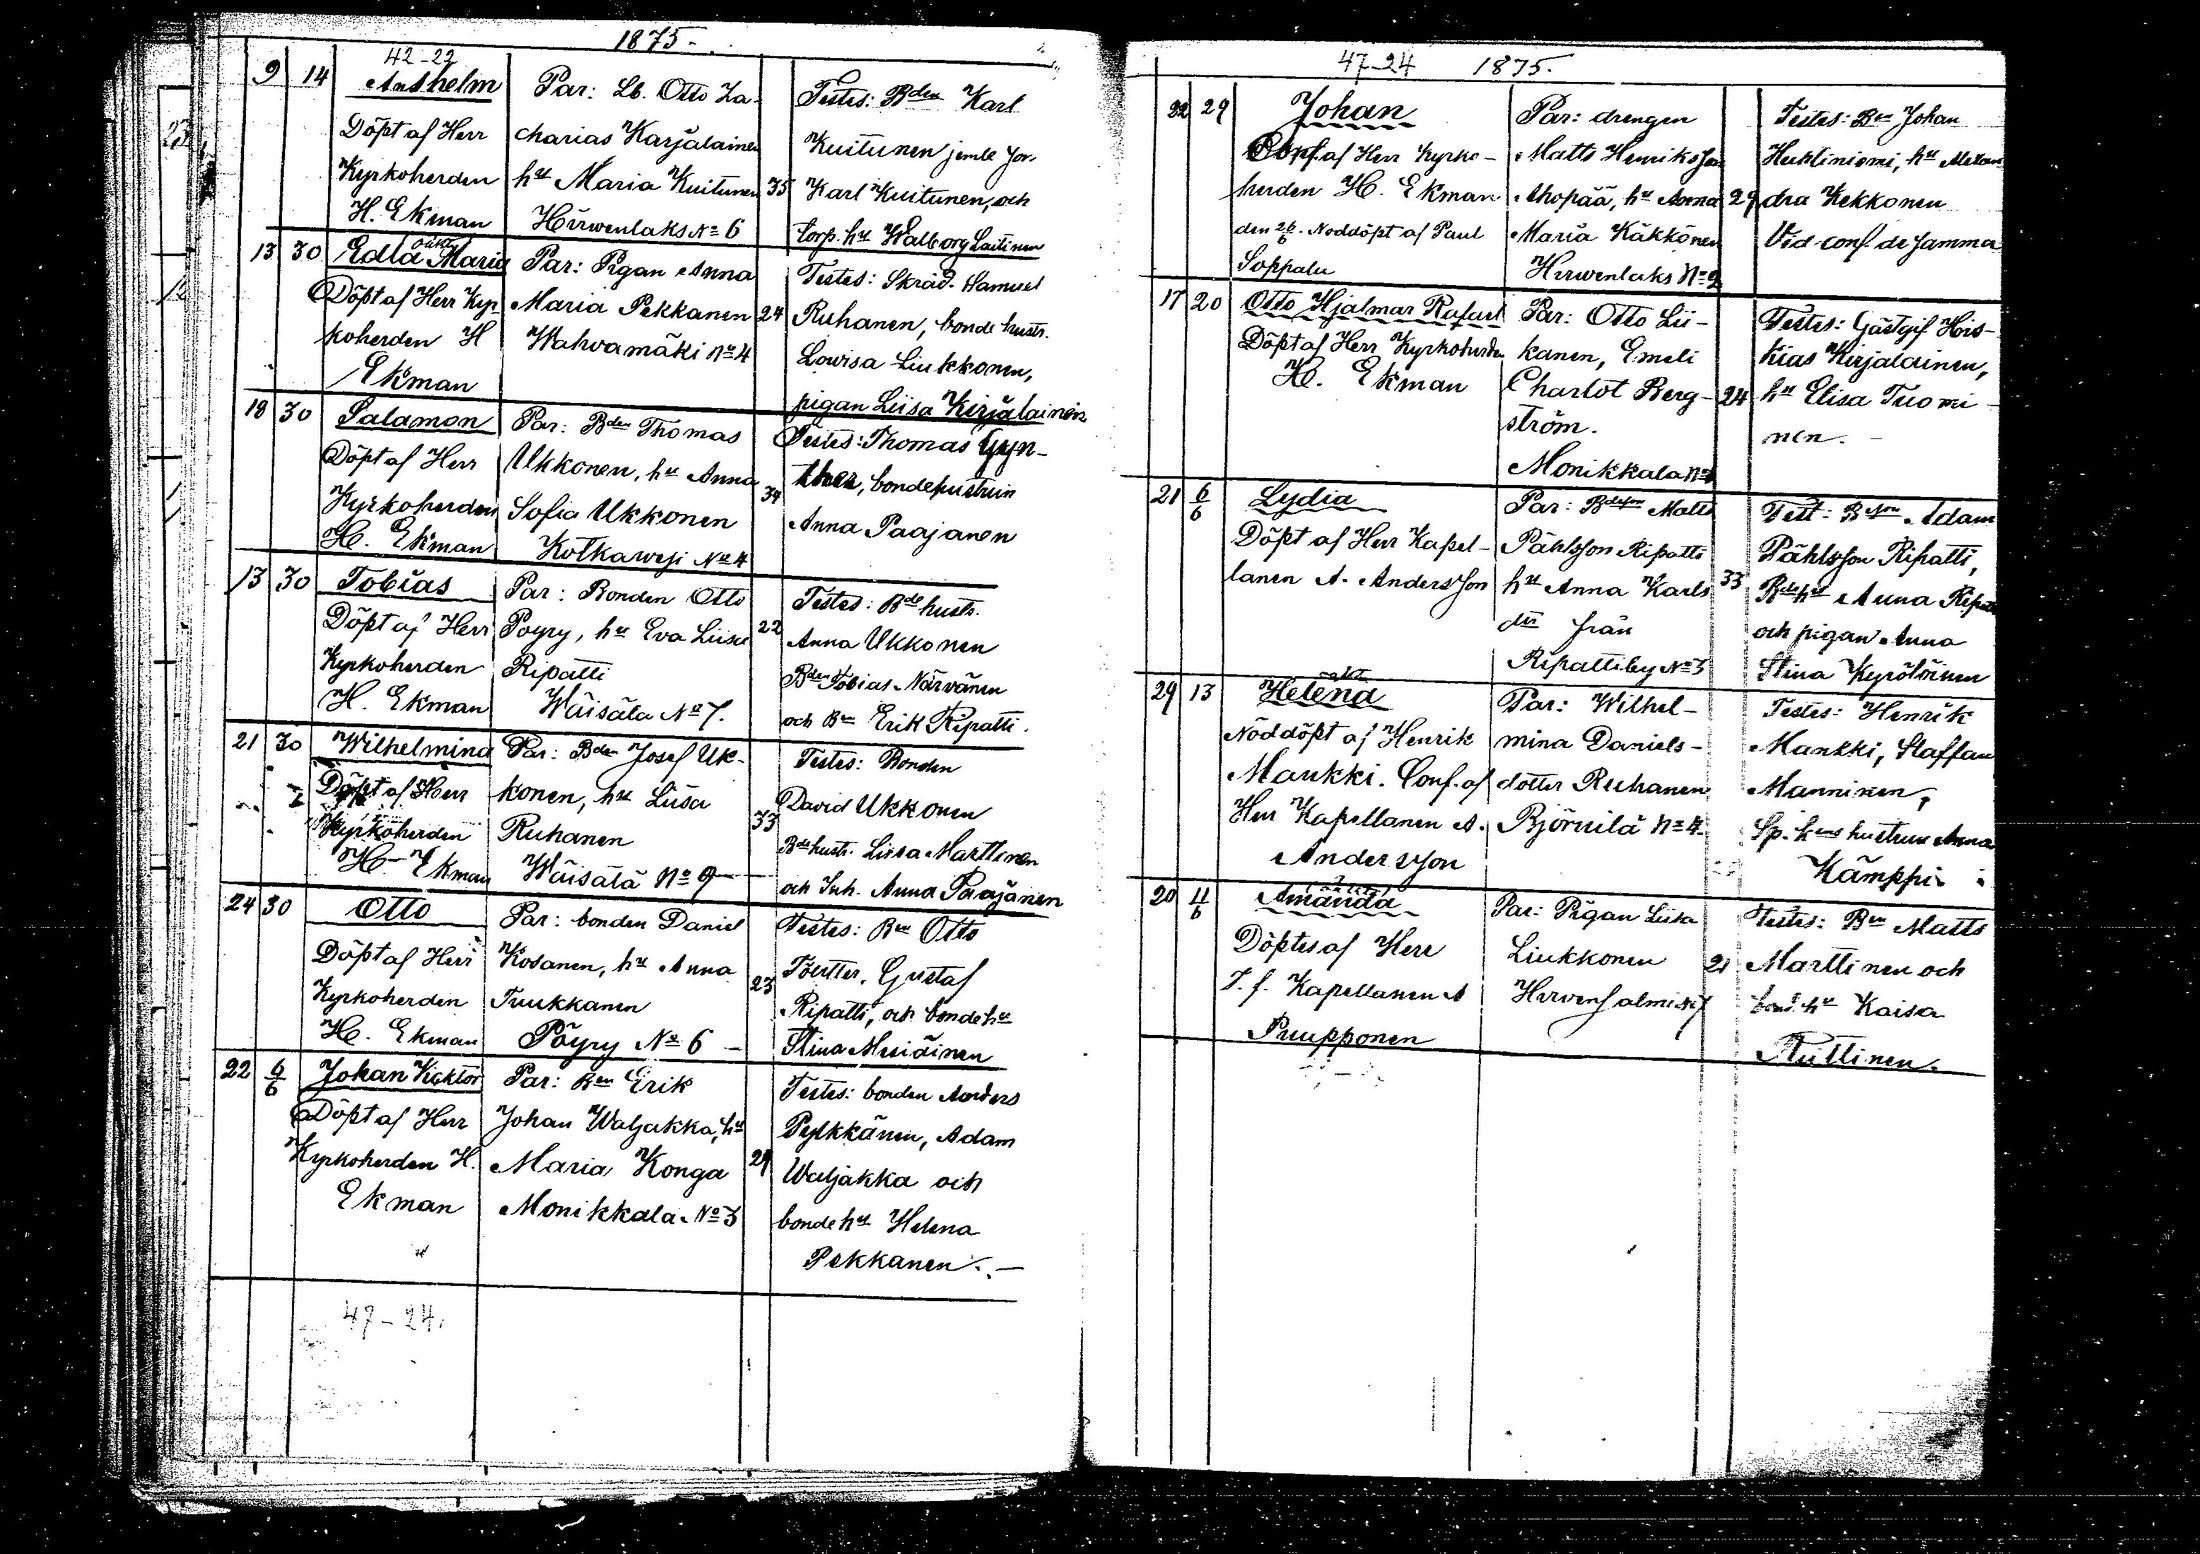 1875.
42-23
9 14 Anshelm
Döpt af Herr
Kyrkoherden
H. Ekman
Par: Lb. Otto Za-
charias Karjalainen
hu Maria Kuitunen 35
Hirwenlaks No 6
Testes: Bden Karl
Kuitunen jemte
Karl Kuitunen, och
torp. hu Walborg Laitinen
13 30 Edla Maria
oäkt
Döpt af Herr Kyr-
koherden H
Ekman
Par: Pigan Anna
Maria Pekkanen 24
Wahwamäki No 4
Testes: Skräd. Samuel
Ruhanen, bonde hustr.
Lowisa Liukkonen,
pigan Liisa Kirjalainen
18 30 Salamon
Döpt af Herr
Kyrkoherden
H. Ekman
Par: Bden Thomas
Ukkonen, hu Anna
Sofia Ukkonen 34
Kotkawesi No 4
Testes: Thomas Gyn-
ther, bondehustrun
Anna Paajanen
13 30 Tobias
Döpt af Herr
Kyrkoherden
H. Ekman
Par: Bonden Otto
Poyry, hu Eva Liisa 22
Ripatti
Wäisälä No 7.
Testes: Bde hustr.
Anna Ukkonen
Bden Tobias Närvänen
och Bn Erik Ripatti.
21 30 Wilhelmina
Döpt af Herr
Kyrkoherden
H. Ekman
Par: Bden Josef Uk-
konen, hu Liisa 33
Ruhanen
Wäisälä No 9
Testes: Bonden
David Ukkonen
Bdehustr. Liisa Marttinen
och Inh. Anna Paajanen
24 30 Otto
Döpt af Herr
Kyrkoherden
H. Ekman
Par: bonden Daniel
Kosanen, hu Anna 23
Tuukkanen
Pöyry No 6
Testes: Bn Otto
Gustaf
Ripatti, och bonde hu
Stina
22 6/6 Johan Wiktor
Döpt af Herr
Kyrkoherden H.
Ekman
Par: Bn Erik
Johan Waljakka, hu
Maria Konga 29
Monikkala No 3
Testes: bonden Anders
Pylkkänen, Adam
Waljakka och
bonde hu Helena
Pekkanen.
47-24.
47-24 1875.
22 29 Johan
Conf. af Herr Kyrko-
herden H. Ekman
den 26/6. Noddöpt af Paul
Soppala
Par: drengen
Matts Henriksson
Ahopää, hu Anna 29
Maria Käkkönen
Hirwenlaks No 2
Testes: Bn Johan
Huhtiniemi, hu Alexan-
dra Kekkonen
Vid conf. de samma
17 20 Otto Hjalmar Rafael
Döpt af Herr Kyrkoherden
H. Ekman
Par: Otto Lii-
kanen, Emeli
Charlot Berg- 24
ström.
Monikkala No
Testes: Gästgif His-
kias Kirjalainen,
hu Elisa Tuomi-
nen.
21 6/6 Lydia
Döpt af Herr Kapel-
lanen A. Andersson
Par: Bdeson Matts
Påhlsson Ripatti
hu Anna Karls 33
dtr från
Ripattiby No 3
Test: Bson Adam
Påhlsson Ripatti,
Bdehu Anna Ripatti
och pigan Anna
Stina Kyrölöinen
29 13 Helena
oäkt
Nöddöpt af Henrik
Mankki. Conf. af
Herr Kapellanen A.
Andersson
Par: Wilhel-
mina Daniels-
dotter Ruhanen
Björnilä No 4.
Testes: Henrik
Mankki, Staffan
Manninen,
Sp. hans hustrun Anna
Kämppi
20 11/6 Amanda
Döptes af Herr
T. f. Kapellanen A
Puupponen
Par: Pigan Liisa
Liukkonen 21
Hirvensalmi No 7
Testes: Bn Matts
Marttinen och
bond. hu Kaisa
Ruttinen.